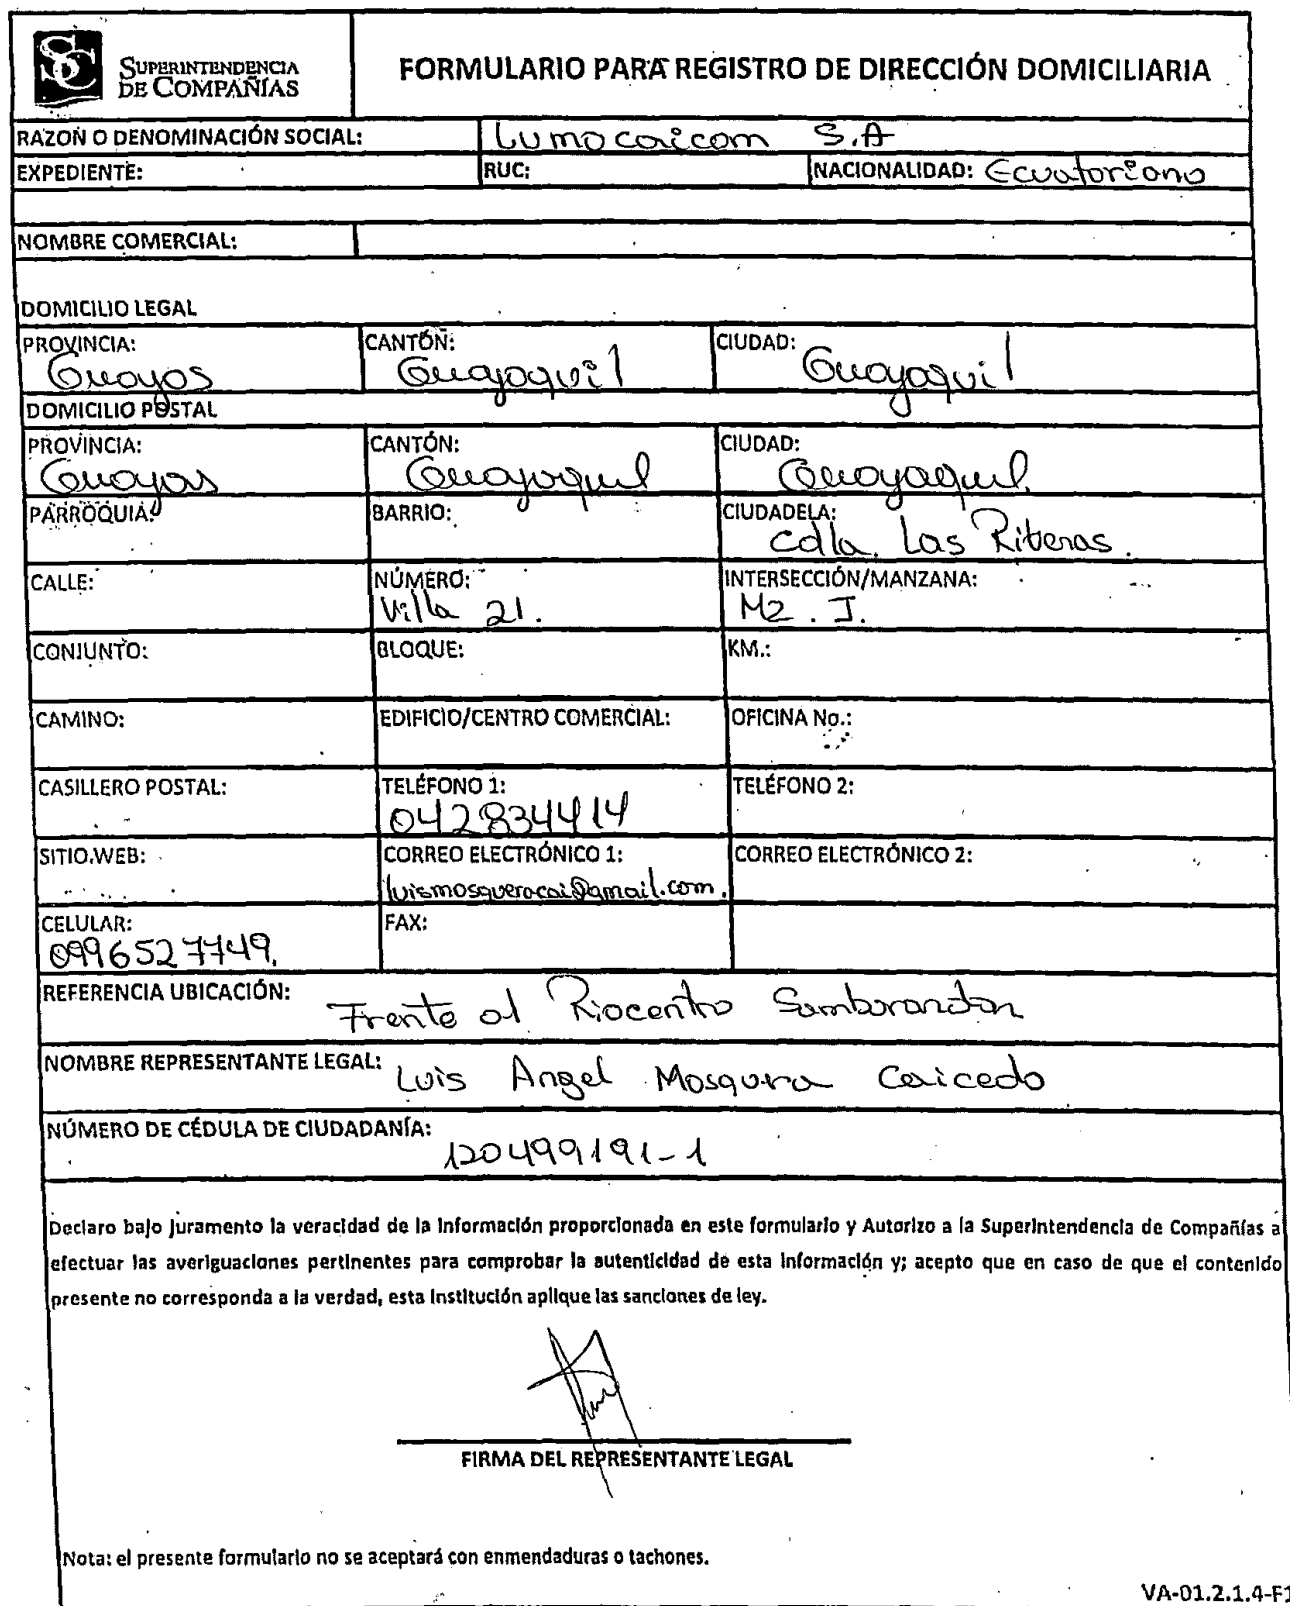 SC SUPERINTENDENCIA DE COMPAÑÍAS
FORMULARIO PARA REGISTRO DE DIRECCIÓN DOMICILIARIA
RAZON O DENOMINACIÓN SOCIAL: Lumocaicom S.A
EXPEDIENTE: RUC: NACIONALIDAD: Ecuatoriano
NOMBRE COMERCIAL:
DOMICILIO LEGAL
PROVINCIA: CANTÓN: CIUDAD:
Guayas Guayaquil Guayaquil
DOMICILIO POSTAL
PROVINCIA: CANTÓN: CIUDAD:
Guayas Guayaquil Guayaquil
PARROQUIA: BARRIO: CIUDADELA:
Cdla. Las Riberas.
CALLE: NÚMERO: INTERSECCIÓN/MANZANA:
Villa 21. Mz. J.
CONJUNTO: BLOQUE: KM.:
CAMINO: EDIFICIO/CENTRO COMERCIAL: OFICINA No.:
CASILLERO POSTAL: TELÉFONO 1: TELÉFONO 2:
042834414
SITIO.WEB: CORREO ELECTRÓNICO 1: CORREO ELECTRÓNICO 2:
luismosqueracai@gmail.com.
CELULAR: FAX:
0996527749.
REFERENCIA UBICACIÓN: Frente al Riocentro Samborondon
NOMBRE REPRESENTANTE LEGAL: Luis Angel Mosquera Caicedo
NÚMERO DE CÉDULA DE CIUDADANÍA:
120499191-1
Declaro bajo juramento la veracidad de la información proporcionada en este formulario y Autorizo a la Superintendencia de Compañías a
efectuar las averiguaciones pertinentes para comprobar la autenticidad de esta información y; acepto que en caso de que el contenido
presente no corresponda a la verdad, esta institución aplique las sanciones de ley.
FIRMA DEL REPRESENTANTE LEGAL
Nota: el presente formulario no se aceptará con enmendaduras o tachones.
VA-01.2.1.4-F1